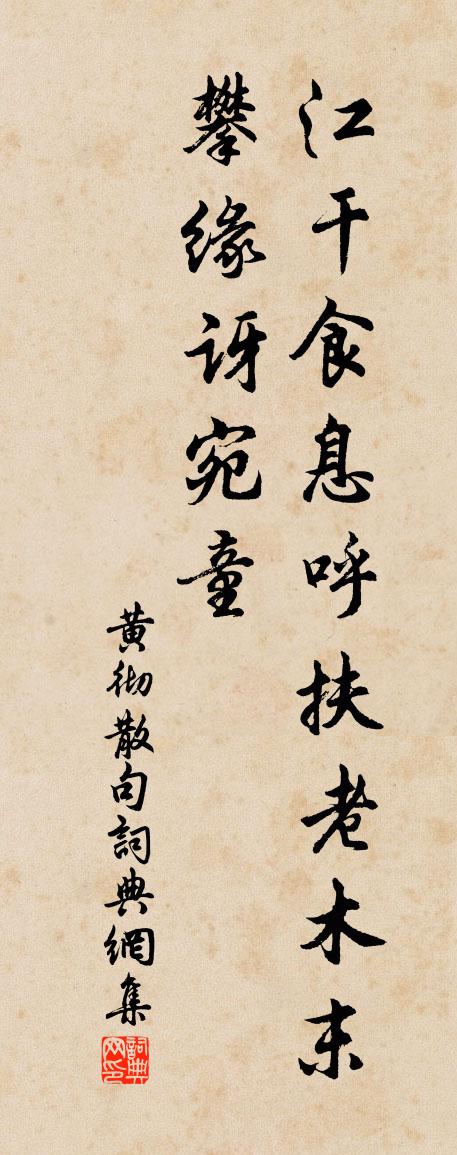 江干食息呼扶老木末
攀缘讶宛童
黄彻散句詞典網集
詞典网印